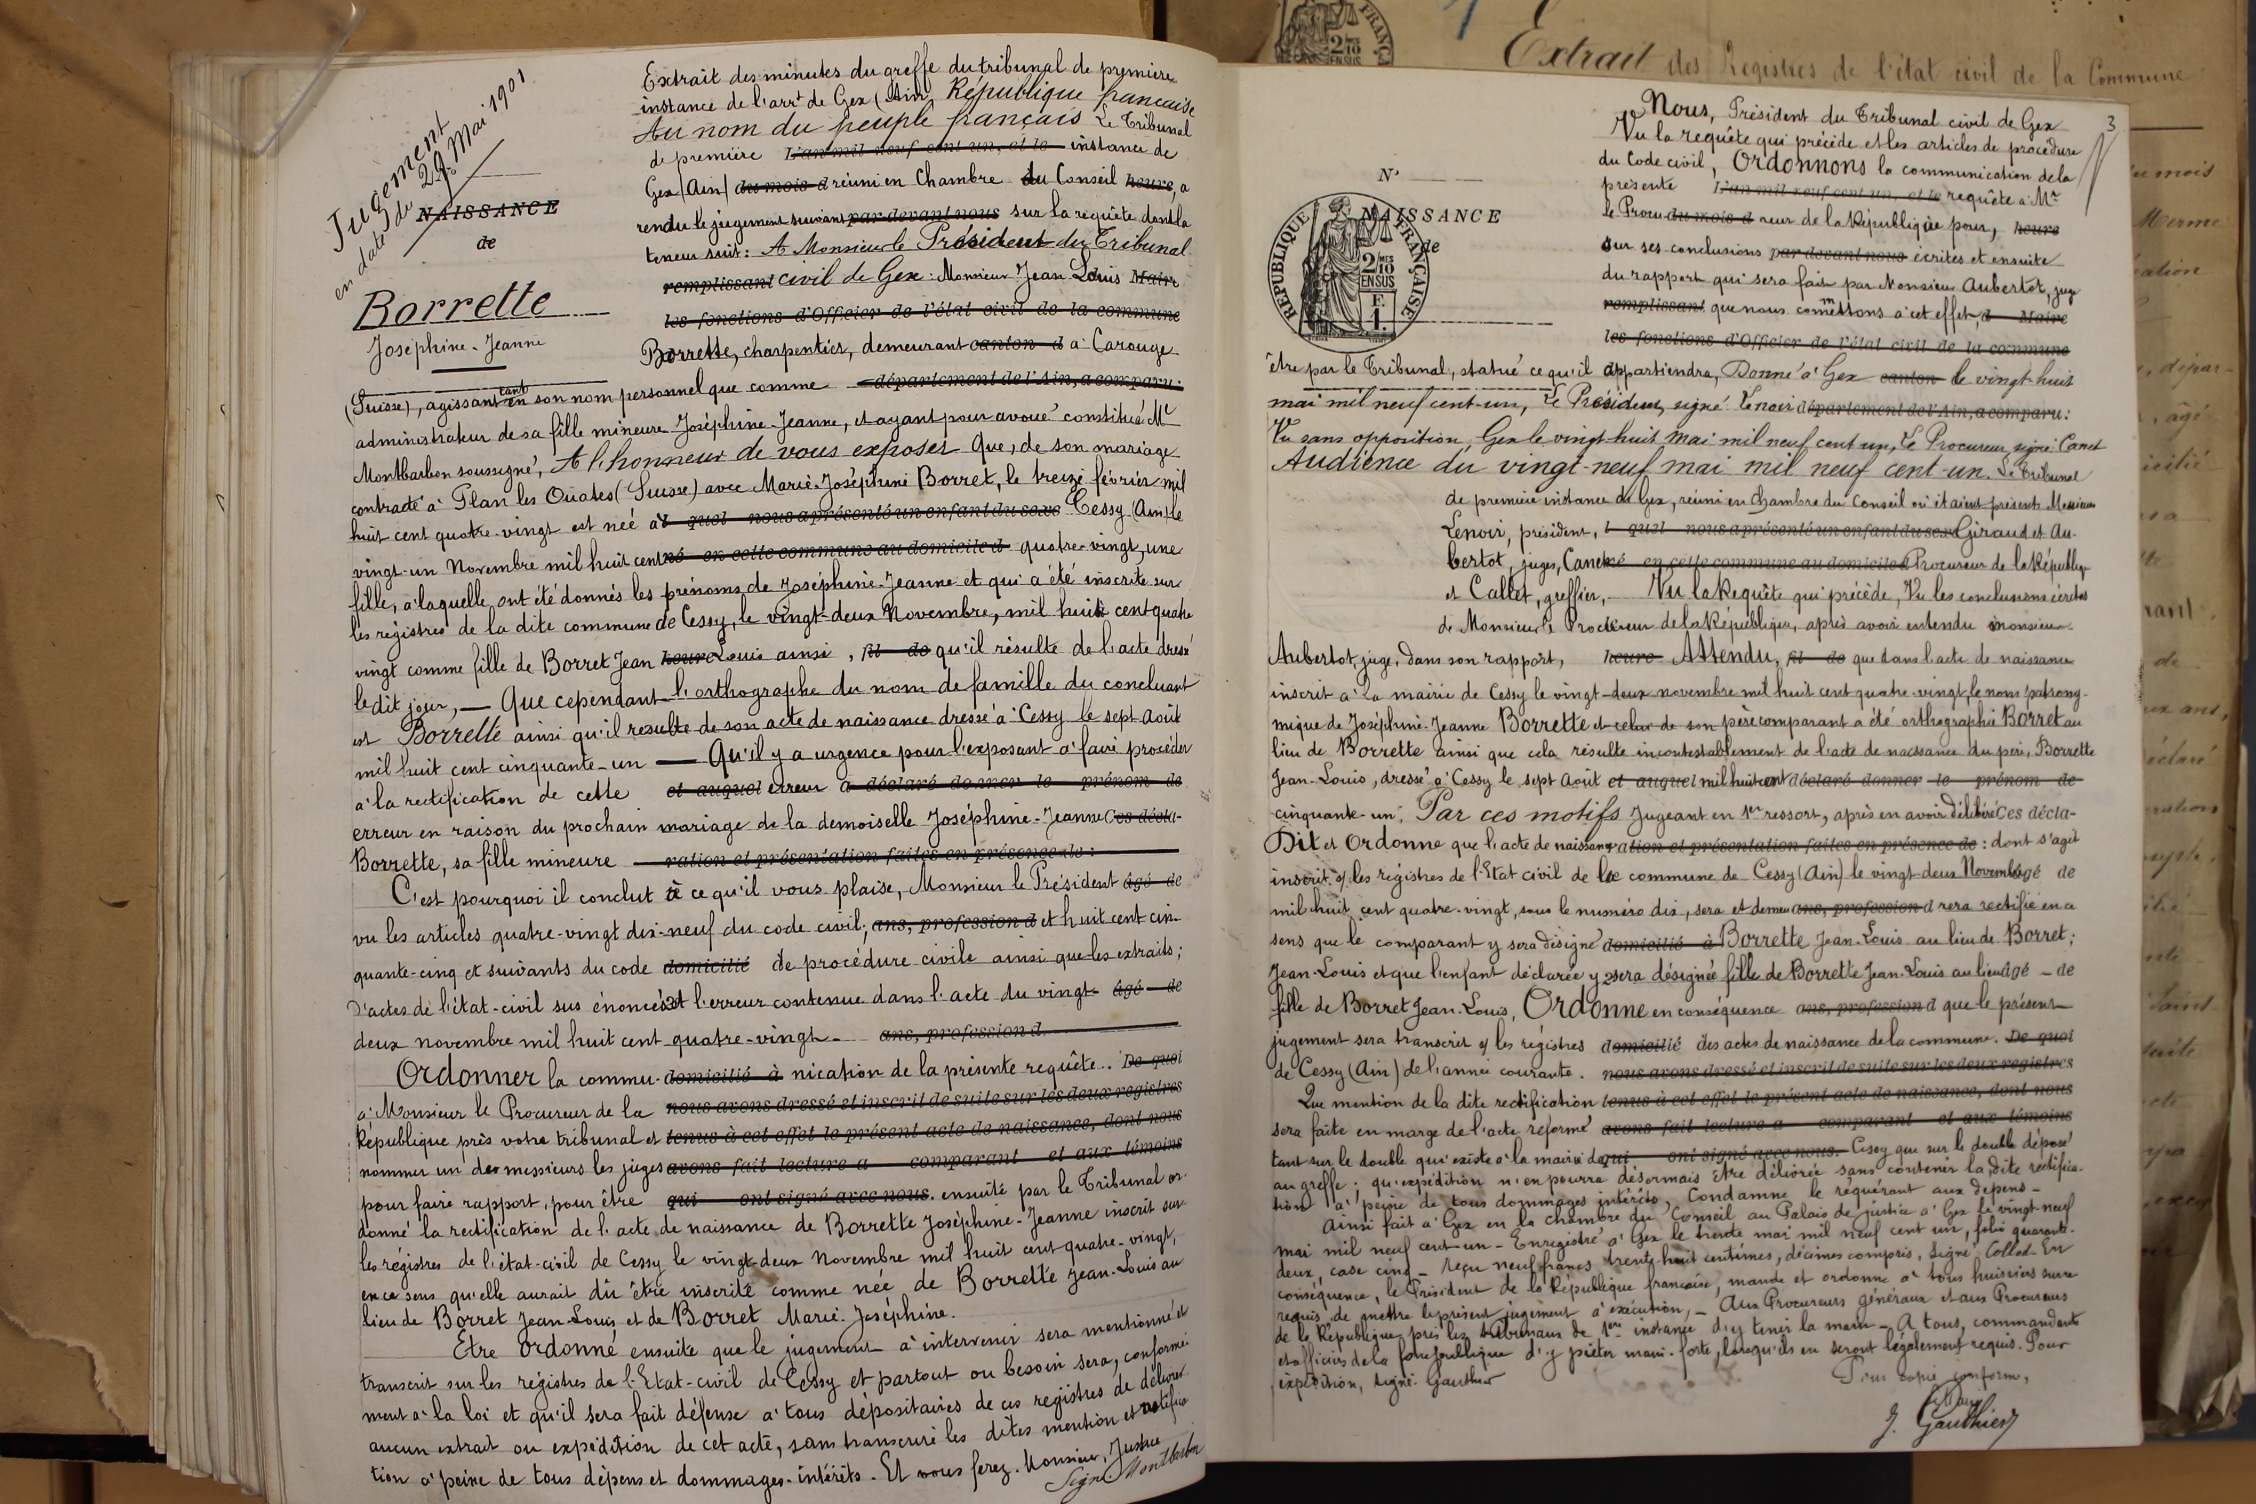 Jugement
en date du 29 Mai 1901
NAISSANCE
de
Borrette
Joséphine-Jeanne
Extrait des minutes du greffe du tribunal de première
instance de l'arrt de Gex (Ain) République française
Au nom du peuple français Le Tribunal
de première L'an mil neuf cent un, et le instance de
Gex (Ain) du mois d réuni en Chambre du Conseil heure, a
rendu le jugement suivant par devant nous sur la requête dont la
teneur suit: A Monsieur le Président du Tribunal
remplissant civil de Gex: Monsieur Jean Louis Maire
les fonctions d'Officier de l'état civil de la commune
Borrette, charpentier, demeurant canton d à Carouge
(Suisse), agissant tant en son nom personnel que comme département de l'Ain, a comparu:
administrateur de sa fille mineure Joséphine-Jeanne, et ayant pour avoué constitué Me
Montbarbon soussigné, A l'honneur de vous exposer Que, de son mariage
contracté à Plan les Ouates (Suisse) avec Marie-Joséphine Borret, le treize février mil
huit cent quatre-vingt est née à quel nous a présenté un enfant du sexe Cessy (Ain) le
vingt-un Novembre mil huit cent né en cette commune au domicile d quatre-vingt, une
fille, à laquelle ont été donnés les prénoms de Joséphine-Jeanne et qui a été inscrite sur
les régistres de la dite commune de Cessy, le vingt-deux Novembre, mil huit cent quatre
vingt comme fille de Borret Jean heure Louis ainsi, fil de qu'il résulte de l'acte dressé
le dit jour, — Que cependant l'orthographe du nom de famille du concluant
est Borrette ainsi qu'il résulte de son acte de naissance dressé à Cessy le sept Août
mil huit cent cinquante-un — Qu'il y a urgence pour l'exposant à faire procéder
à la rectification de cette et auquel erreur a déclaré donner le prénom de
erreur en raison du prochain mariage de la demoiselle Joséphine-Jeanne Ces décla-
Borrette, sa fille mineure ration et présentation faites en présence de:
C'est pourquoi il conclut à ce qu'il vous plaise, Monsieur le Président âgé de
vu les articles quatre-vingt dix-neuf du code civil; ans, profession d et huit cent cin-
quante-cinq et suivants du code domicilié de procédure civile ainsi que les extraits;
d'actes de l'état-civil sus énoncés et l'erreur contenue dans l'acte du vingt- âgé de
deux novembre mil huit cent quatre-vingt- ans, profession d
Ordonner la commu- domicilié à nication de la présente requête. De quoi
à Monsieur le Procureur de la nous avons dressé et inscrit de suite sur les deux registres
République près votre tribunal et tenus à cet effet le présent acte de naissance, dont nous
nommer un des messieurs les juges avons fait lecture a comparant et aux témoins
pour faire rapport, pour être qui ont signé avec nous. ensuite par le Tribunal or-
donné la rectification de l'acte de naissance de Borrette Joséphine-Jeanne inscrit sur
les régistres de l'état-civil de Cessy le vingt-deux Novembre mil huit cent quatre-vingt,
en ce sens qu'elle aurait dû être inscrite comme née de Borrette Jean-Louis au
lieu de Borret Jean-Louis et de Borret Marie-Joséphine.
Etre ordonné ensuite que le jugement à intervenir sera mentionné et
transcrit sur les régistres de l'Etat-civil de Cessy et partout ou besoin sera, conformé-
ment à la loi et qu'il sera fait défense à tous dépositaires de ces registres de délivrer
aucun extrait ou expédition de cet acte, sans transcrire les dites mention et rectifica-
tion à peine de tous dépens et dommages-intérêts. Et vous ferez, Monsieur, Justice
Signé Montbarbon
Extrait des Registres de l'état civil de la Commune
3
N°
NAISSANCE
de
RÉPUBLIQUE FRANÇAISE
2/10 EN SUS
F. 1.
Nous, Président du Tribunal civil de Gex
Vu la requête qui précède et les articles de procédure
du Code civil, Ordonnons la communication de la
présente L'an mil neuf cent un, et le requête à Mr
le Procu du mois d reur de la République pour, heure
sur ses conclusions par devant nous écrites et ensuite
du rapport qui sera fait par Monsieur Aubertot, juge
remplissant que nous commettons à cet effet, d Maire
les fonctions d'Officier de l'état civil de la commune
être par le Tribunal, statué ce qu'il appartiendra, Donné à Gex canton le vingt-huit
mai mil neuf cent-un, Le Président, signé Lenoir département de l'Ain, a comparu:
Vu sans opposition, Gex le vingt-huit Mai mil neuf cent un, Le Procureur, signé: Canet
Audience du vingt-neuf mai mil neuf cent-un. Le Tribunal
de première instance de Gex, réuni en chambre du Conseil où étaient présents Messieurs
Lenoir, président, l quel nous a présenté un enfant du sexe Giraud et Au-
bertot, juges, Canet né en cette commune au domicile d Procureur de la République
et Callet, greffier, — Vu la Requête qui précède, Vu les conclusions écrites
de Monsieur le Procureur de la République, après avoir entendu monsieur
Aubertot, juge, dans son rapport, heure Attendu, fil de que dans l'acte de naissance
inscrit à la mairie de Cessy le vingt-deux novembre mil huit cent quatre-vingt, le nom patrony-
mique de Joséphine-Jeanne Borrette et celui de son père comparant a été orthographié Borret au
lieu de Borrette ainsi que cela résulte incontestablement de l'acte de naissance du père, Borrette
Jean-Louis, dressé à Cessy le sept Août et auquel mil huit cent déclaré donner le prénom de
cinquante-un; Par ces motifs Jugeant en 1er ressort, après en avoir délibéré Ces décla-
Dit et Ordonne que l'acte de naissance ration et présentation faites en présence de: dont s'agit
inscrit s/ les régistres de l'Etat civil de la commune de Cessy (Ain) le vingt-deux Novembre âgé de
mil huit cent quatre-vingt, sous le numéro dix, sera et demeu ans, profession d rera rectifié en ce
sens que le comparant y sera désigné domicilié à Borrette Jean-Louis au lieu de Borret;
Jean-Louis et que l'enfant déclarée y sera désignée fille de Borrette Jean-Louis au lieu âgé de
fille de Borret Jean-Louis, Ordonne en conséquence ans, profession d que le présent
jugement sera transcrit s/ les régistres domicilié des actes de naissance de la commune. De quoi
de Cessy (Ain) de l'année courante. nous avons dressé et inscrit de suite sur les deux registres
Que mention de la dite rectification tenus à cet effet le présent acte de naissance, dont nous
sera faite en marge de l'acte réformé avons fait lecture a comparant et aux témoins
tant sur le double qui existe à la mairie de qui ont signé avec nous. Cessy que sur le double déposé
au greffe; qu'expédition n'en pourra désormais être délivrée sans contenir la dite rectifica-
tion à peine de tous dommages intérêts, Condamne le réquérant aux dépens-
Ainsi fait à Gex en la chambre du Conseil au Palais de justice à Gex le vingt-neuf
mai mil neuf cent-un - Enregistré à Gex le trente mai mil neuf cent un, folio quarante-
deux, case cinq - reçu neuf francs trente-huit centimes, décimes compris, Signé Collod - En
conséquence, le Président de la République française, mande et ordonne à tous huissiers sur ce
requis, de mettre le présent jugement à exécution, - Aux Procureurs généraux et aux Procureurs
de la République près les tribunaux de 1ère instance d'y tenir la main - A tous commandants
et officiers de la force publique d'y prêter main-forte, lorsqu'ils en seront légalement requis. Pour
expédition, signé: Gauthier
Pour copie conforme,
J. Gauthier